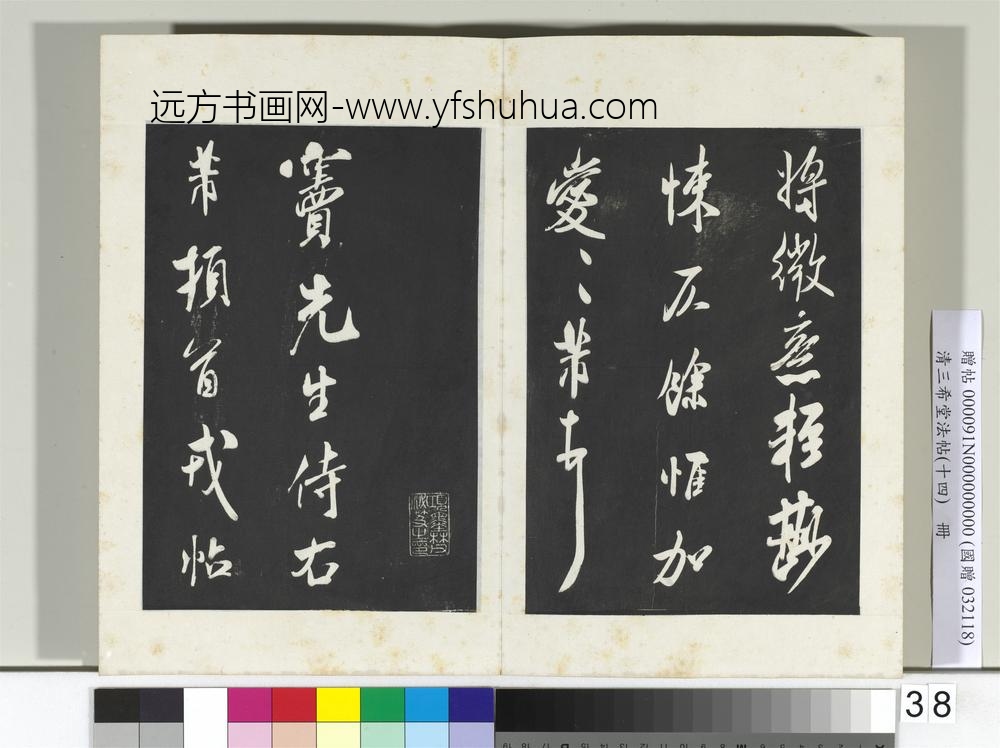 远方书画网-www.yfshuhua.com
將微意輕尠
悚仄餘惟加
愛〻〻芾
竇先生侍右
芾頓首戎帖
項墨林父秘笈之印
贈帖 000091N000000000 (國贈 032118)
清三希堂法帖(十四) 冊
38